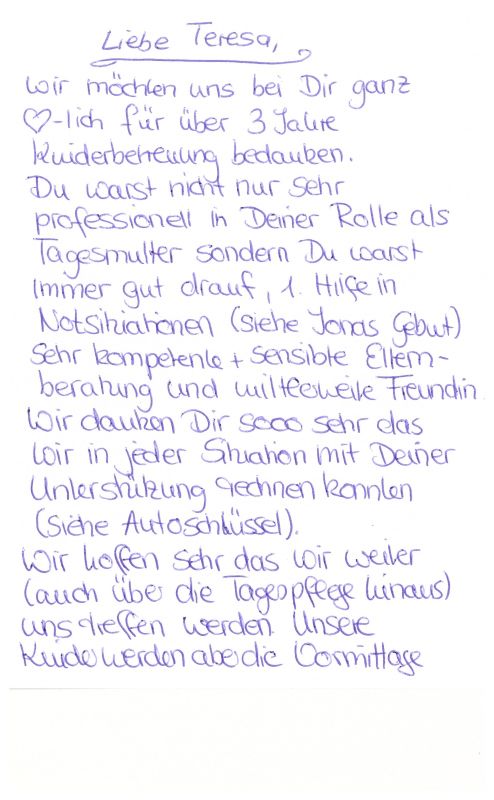 Liebe Teresa,
wir möchten uns bei Dir ganz
♡-lich für über 3 Jahre
Kinderbetreuung bedanken.
Du warst nicht nur sehr
professionell in Deiner Rolle als
Tagesmutter sondern Du warst
immer gut drauf, 1. Hilfe in
Notsituationen (siehe Jonas Geburt)
sehr kompetente + sensible Eltern-
beratung und mittlerweile Freundin
Wir danken Dir sooo sehr das
wir in jeder Situation mit Deiner
Unterstützung rechnen konnten
(siehe Autoschlüssel).
Wir hoffen sehr das wir weiter
(auch über die Tagespflege hinaus)
uns treffen werden. Unsere
Kinder werden aber die Vormittage